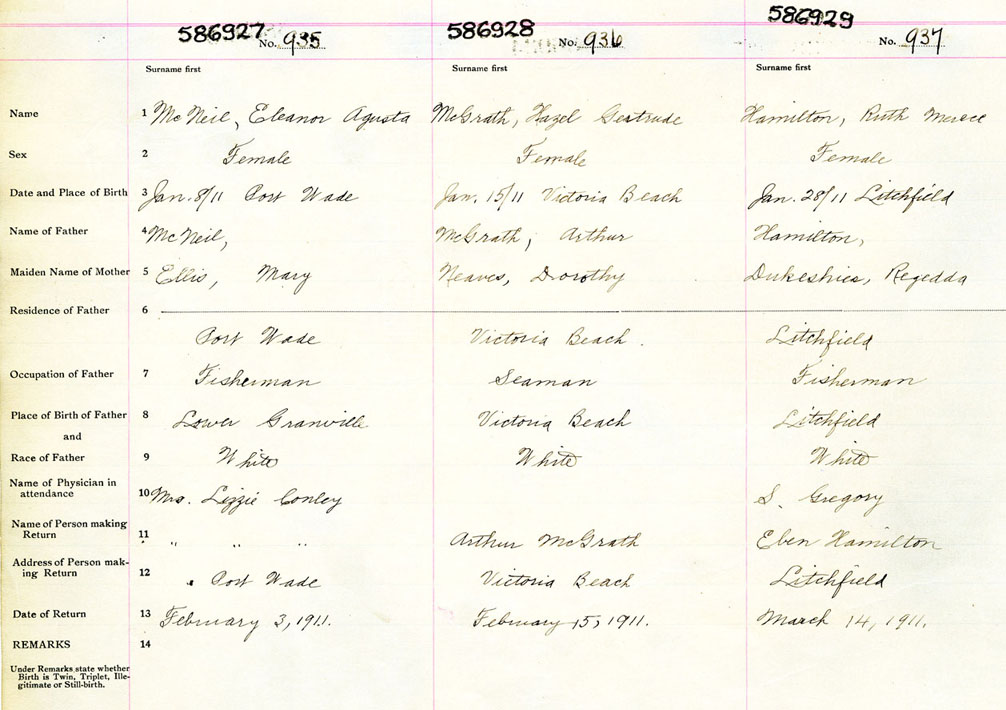 586927 No. 935 586928 No. 936 586929 No. 937
Surname first Surname first Surname first
Name 1 McNeil, Eleanor Agusta McGrath, Hazel Gertrude Hamilton, Ruth
Sex 2 Female Female Female
Date and Place of Birth 3 Jan. 8/11 Port Wade Jan. 15/11 Victoria Beach Jan. 28/11 Litchfield
Name of Father 4 McNeil, McGrath, Arthur Hamilton,
Maiden Name of Mother 5 Ellis, Mary Neaves, Dorothy Dukeshire, Regedda
Residence of Father 6
Port Wade Victoria Beach. Litchfield
Occupation of Father 7 Fisherman Seaman Fisherman
Place of Birth of Father 8 Lower Granville Victoria Beach Litchfield
and
Race of Father 9 White White White
Name of Physician in
attendance 10 Mrs. Lizzie Conley S. Gregory
Name of Person making
Return 11 " " " Arthur McGrath Eben Hamilton
Address of Person mak-
ing Return 12 " Port Wade Victoria Beach Litchfield
Date of Return 13 February 3, 1911. February 15, 1911. March 14, 1911.
REMARKS 14
Under Remarks state whether
Birth is Twin, Triplet, Ille-
gitimate or Still-birth.